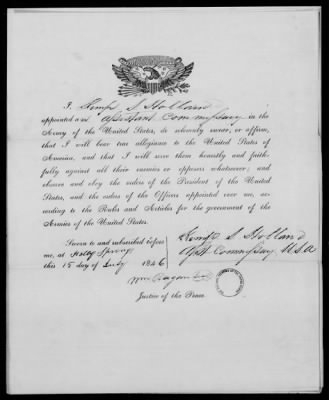 I, Kemp S Holland
appointed an Assistant Commissary in the
Army of the United States, do solemnly swear, or affirm,
that I will bear true allegiance to the United States of
America, and that I will serve them honestly and faith-
fully against all their enemies or opposers whatsoever; and
observe and obey the orders of the President of the United
States, and the orders of the Officers appointed over me, ac-
cording to the Rules and Articles for the government of the
Armies of the United States.
Sworn to and subscribed before
me, at Holly Springs
this 15 day of July 1846
Kemp S Holland
Asst Commissary U.S.A
Wm
Justice of the Peace.